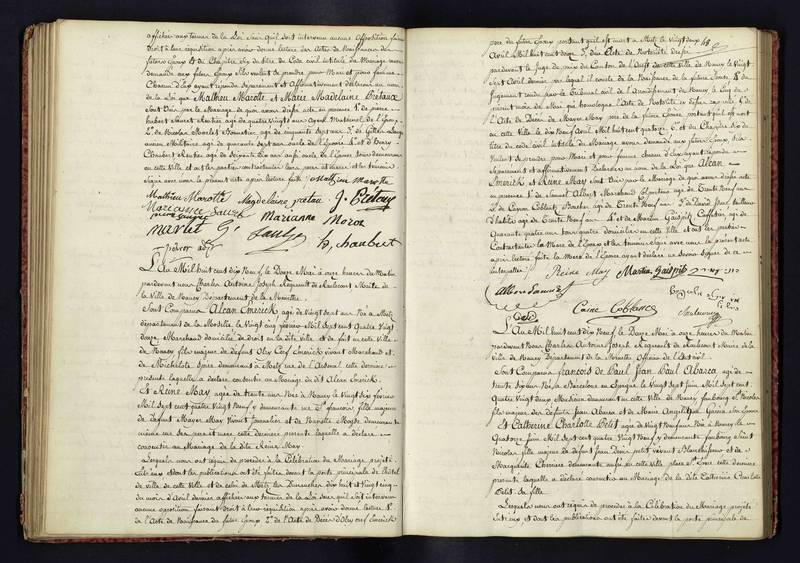 affichée aux termes de la Loi sans qu'il soit intervenu aucune opposition fai
droit à leur réquisition après avoir donné lecture des Actes de Naissances des
futurs Epoux et du Chapitre six du titre du Code civil intitulé du Mariage avons
demandé aux futurs Epoux s'ils veulent se prendre pour Mari et pour femme
Chacun d'eux ayant répondu séparément et affirmativement déclarons au nom
de la Loi que Mathieu Marotte et Marie Madelaine Pretaux
sont Unis par le Mariage de quoi avons dressé acte en présence 1° de pierre
hubert Sauret Rentier agé de quatre Vingts ans Ayeul Maternel de l'Epoux
2° de Nicolas Marlet agé de cinquante sept ans
ancien Militaire agé de quarante sept ans oncle de l'Epouse 4° et d'henry
Chaubert Rentier agé de Soixante dix ans aussi oncle de l'Epouse tous demeurants
en cette Ville et ont les parties contractantes leurs pères et mères et les témoins
signé avec nous le présent acte après lecture faite. Mathieu Marotte
Mathieu Marotte Magdelaine pretau J. Pretau
Marianne Sauret
Marianne Moror
marlet h, chaubert
L'An Mil huit cent dix Neuf, le Douze Mai à onze heures du Matin
pardevant nous Charles Antoine Joseph Regneault de Raulecourt Maire de
la Ville de Nancy Département de la Meurthe.
Sont Comparus Alcan Emerick, agé de Vingt sept ans Né à Metz
département de la Moselle, le Vingt cinq février Mil sept cent Quatre Vingt
douze, Marchand domicilié de droit en la dite Ville et de fait en cette Ville
de Nancy fils majeur de défunt Olry Cerf Emerick vivant Marchand et
de Michelete Spire demeurant à Metz rue de l'Arsenal cette dernière
présente laquelle a déclaré consentir au Mariage du dit Alcan Emerick.
Et Reine May, agée de trente ans Née à Nancy le Vingt six février
Mil sept cent quatre Vingt Neuf y demeurante rue St. francois, fille majeure
de défunt Mayer May vivant Journalier et de demeurante
même rue ses père et mère cette dernière présente laquelle a déclaré
consentir au Mariage de la dite Reine May.
Lesquels nous ont requis de procéder à la Célébration du Mariage projeté
entre eux et dont les publications ont été faites devant la porte principale de l'hôtel
de Ville de cette Ville et de celui de Metz les Dimanches dix huit et Vingt cinq
du mois d'Avril dernier affichées aux termes de la Loi sans qu'il soit intervenu
aucune opposition faisant droit à leur réquisition après avoir donné lecture 1°
de l'Acte de Naissance du futur Epoux, 2° de l'Acte de Décès d'Olry Cerf Emerick
père du futur Epoux portant qu'il est mort à Metz le Vingt deux
48
Avril Mil huit cent douze 3° d'un Acte de Notoriété dressé
pardevant le Juge de paix du Canton de l'Ouest de cette Ville de Nancy le Vingt
Sept Avril dernier par lequel il conste de la Naissance de la future Epouse 4° du
Jugement rendu par le Tribunal civil de l'Arrondissement de Nancy le Cinq du
présent mois de Mai qui homologue l'Acte de Notoriété ci dessus rappelé, 5° de
l'Acte de Décès de Mayer May père de la future Epouse portant qu'il est mort
en cette Ville le dix Neuf Avril Mil huit cent quatorze 6° et du Chapitre Six du
titre du code civil intitulé du Mariage avons demandé aux futurs Epoux, s'ils
Veulent se prendre pour Mari et pour femme chacun d'eux ayant répondu
séparément et affirmativement déclarons au nom de la Loi que Alcan
Emerick et Reine May sont Unis par le Mariage de quoi avons dressé acte
en présence 1° de Samuel Albert Marchand agé de Trente Neuf ans
2° de Cayem Coblentz Boucher agé de Trente Neuf ans 3° de David tailleur
d'habits agé de Trente Neuf ans 4° et de Martin Gaspitz Caffetier agé de
Quarante quatre ans tous quatre domiciliés en cette Ville et ont les parties
Contractantes la Mère de l'Epoux et les témoins signé avec nous le présent acte
après lecture faite, la Mère de l'Epouse ayant déclaré ne Savoir Signer de ce
interpellée. Reine May Martin Gaspitz
Caïme Coblance
L'An Mil huit cent dix Neuf le Douze Mai à onze heures du Matin
pardevant Nous Charles Antoine Joseph Regneault de Raulecourt Maire de la
Ville de Nancy Département de la Meurthe Officier de l'Etat civil
Sont Comparus francois de Paul Jean Paul Abarca agé de
trente six ans Né à Barcelone en Espagne le Vingt sept Juin Mil sept cent
Quatre Vingt deux Musicien demeurant en cette Ville de Nancy faubourg St Nicolas
fils majeur des défunts Jean Abarca et de Marie Angélique Garcia son Epouse
Et Catherine Charlotte Petit agée de Vingt Neuf ans Née à Nancy le
Quatorze Juin Mil sept cent quatre Vingt Neuf y demeurante faubourg saint
Nicolas fille majeure de défunt Jean petit vivant Blanchisseur et de
Marguerite demeurante aussi en cette Ville place St. Croix cette dernière
présente laquelle a déclaré consentir au Mariage de la dite Catherine Charlotte
Petit sa fille.
Lesquels nous ont requis de procéder à la Célébration du Mariage projeté
entre eux et dont les publications ont été faites devant la porte principale de